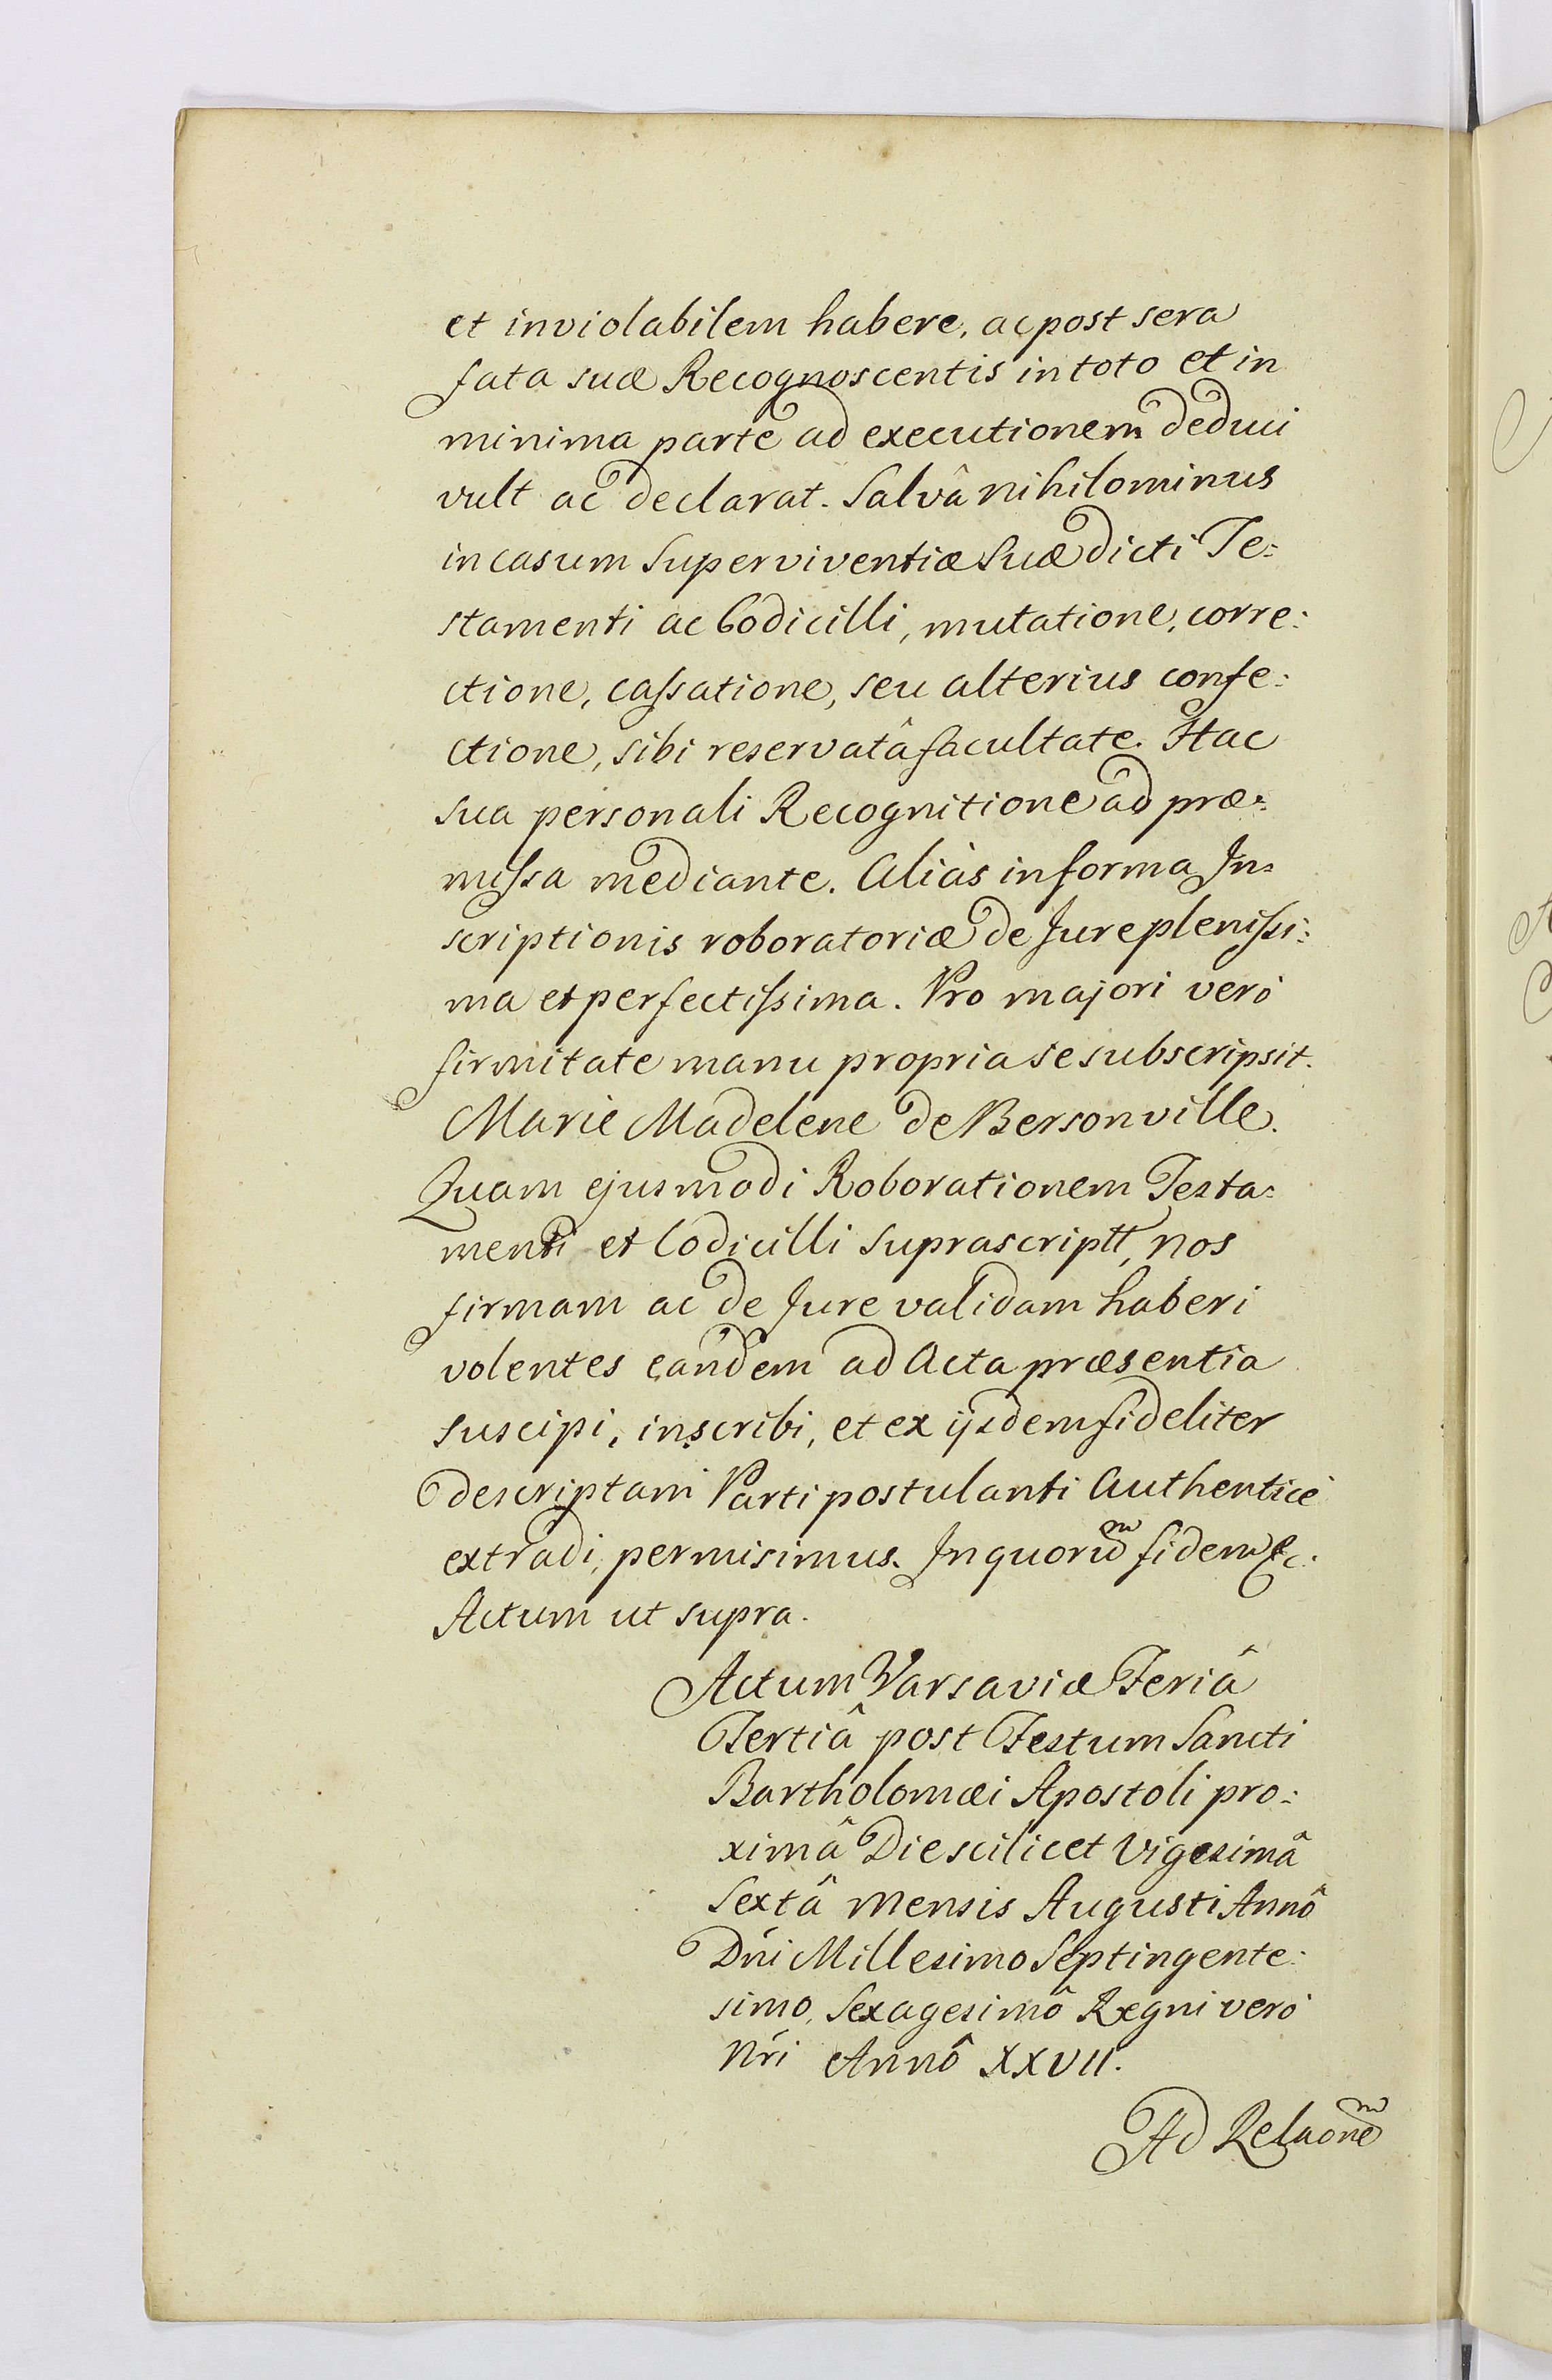 et inviolabilem habere, ac post sera
fata suæ Recognoscentis in toto et in
minima parte ad executionem deduci
vult ac declarat. Salvâ nihilominus
in casum Superviventiæ Suæ dicti Te:
stamenti ac Codicilli, mutatione, corre:
ctione, caſsatione, seu alterius confe:
ctione, sibi reservatâ facultate. Hac
sua personali Recognitione ad præ:
miſsa mediante. Aliàs in forma In:
scriptionis roboratoriæ de Jure pleniſsi:
ma et perfectiſsima. Pro majori verò
firmitate manu propria se subscripsit.
Marie Madelene de Bersonville.
Quam ejusmodi Roborationem Testa:
menti et Codicilli suprascriptt, nos
firmam ac de Jure validam haberi
volentes eandem ad Acta præsentia
suscipi, inscribi, et ex ijsdem fideliter
descriptam Parti postulanti Authenticè
extradi, permisimus. In quorũm fidem &c.
Actum ut supra.
Actum Varsaviæ Feriâ
Tertiâ post Festum Sancti
Bartholomæi Apostoli pro:
ximâ Die scilicet Vigesimâ
Sextâ Mensis Augusti Annô
Dńi Millesimo Septingente:
simo, Sexagesimô Regni verò
Nŕi Annô XXVII.
Ad Relaonem